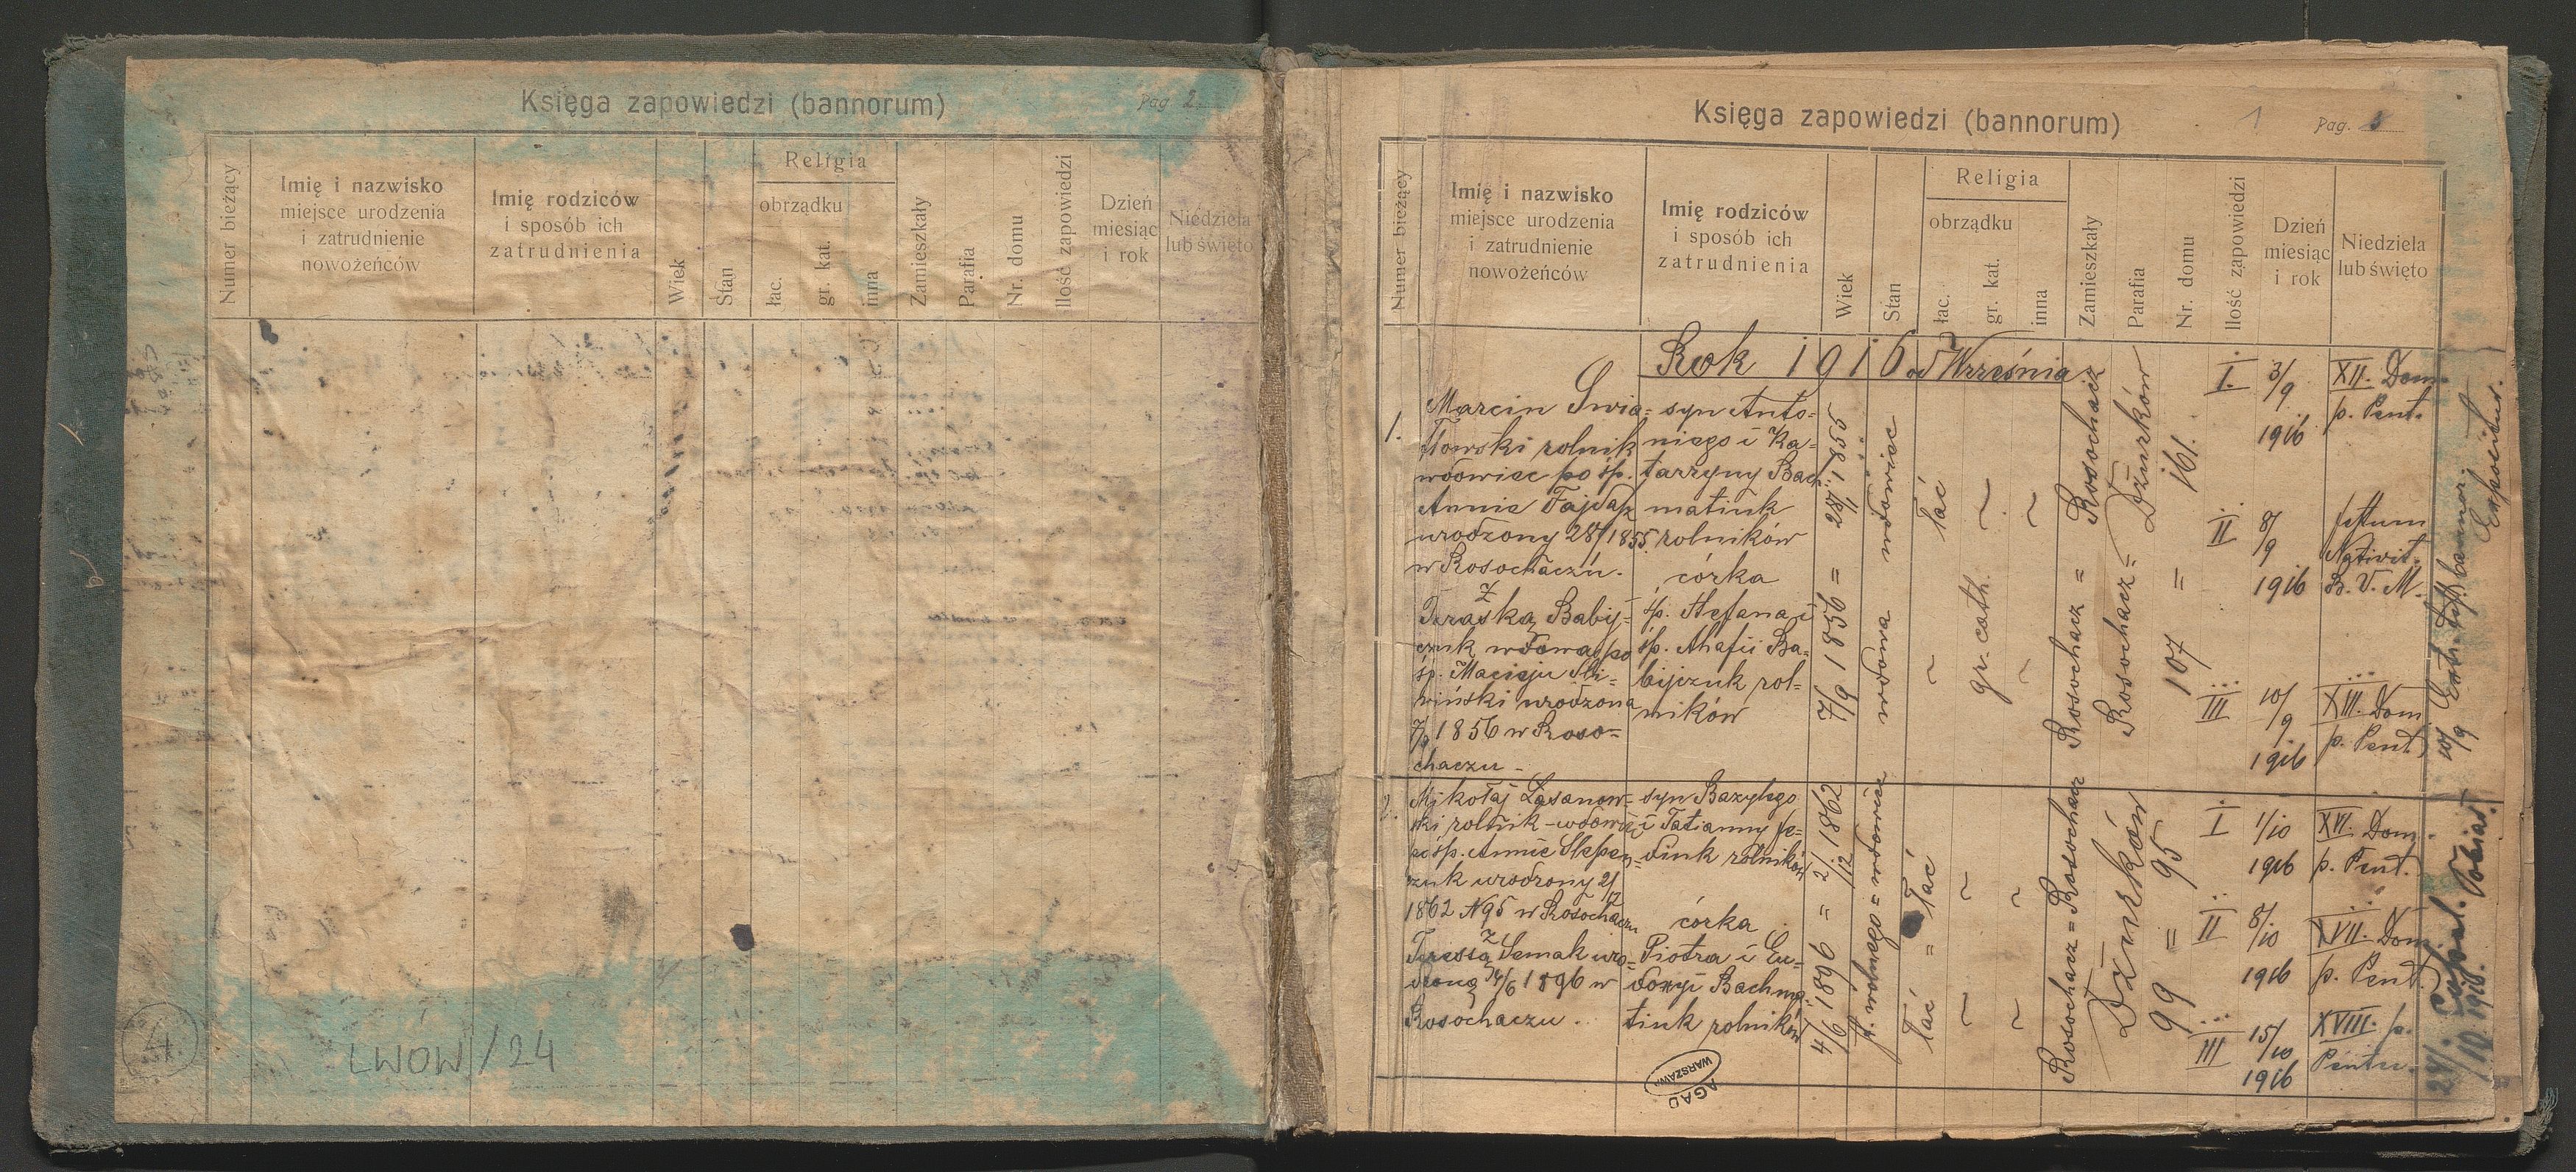 Księga zapowiedzi (bannorum)
Pag 2
Numer bieżący
Imię i nazwisko
miejsce urodzenia
i zatrudnienie
nowożeńców
Imię rodziców
i sposób ich
zatrudnienia
Wiek
Stan
Religia
obrządku
łac.
gr. kat.
inna
Zamieszkały
Parafia
Nr. domu
Ilość zapowiedzi
Dzień
miesiąc
i rok
Niedziela
lub święto
LWOW/24
Księga zapowiedzi (bannorum)
1
Pag.
Numer bieżący
Imię i nazwisko
miejsce urodzenia
i zatrudnienie
nowożeńców
Imię rodziców
i sposób ich
zatrudnienia
Wiek
Stan
Religia
obrządku
łac.
gr. kat.
inna
Zamieszkały
Parafia
Nr. domu
Ilość zapowiedzi
Dzień
miesiąc
i rok
Niedziela
lub święto
Rok 1916 od Września
1.
Marcin Swia=
tłowski rolnik
wdowiec po śp.
Annie Fajda
urodzony 28/ 1855
w Rosochaczu.
z
Teraską Babij=
czuk wdową po
śp. Macieju Śli=
wiński urodzona
7/9 1856 w Roso=
chaczu -
syn Anto=
niego i Ka=
tarzyny Bach=
matiuk
rolników
córka
śp. Stefana i
śp. Ahafii Ba=
bijczuk rol=
ników
28/11 1855
=
7/9 1856
wdowiec
wdowa
łać
~
~
~
gr. cath.
~
Rosochacz
=
Rosochacz
Dżurków
Rosochacz =
161.
=
107
I.
3/9
1916
XII. Dom.
p. Pent.
II
8/9
1916
festum
Nativit.
B. V. M.
III
10/9
1916
XIII. Dom
p. Pent.
10/9
Exposit.
2.
Mikołaj Łasanow=
ski rolnik - wdowiec
po śp. Annie Slepen=
czuk urodzony 2/
12
1862 N95 w Rosochaczu
z
Teressą Semak uro=
dzoną 4/6 1896 w
Rosochaczu.
syn Bazylego
i Tatianny Fe=
diuk rolników
córka
Piotra i Eu=
doxyi Bachma=
tiuk rolników
2/12 1862
=
4/6 1896
st. wolnego = wdowiec
łać
=
łać
~
~
~
~
Rosochacz = Rosochacz
Dżurków
95
=
99
I
1/10
1916
XVI. Dom.
p. Pent.
II
8/10
1916
XVII. Dom
p. Pent.
III
15/10
1916
XVIII. p.
Pentec.
24/10 1916.
AGAD
WARSZAWA